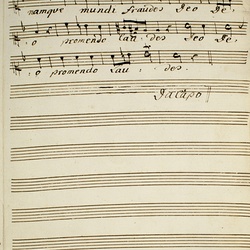 namque mundi fraudes Deo De:
:o promende Lau: des Deo De:
:o promende Lau: : des.
Da Capo